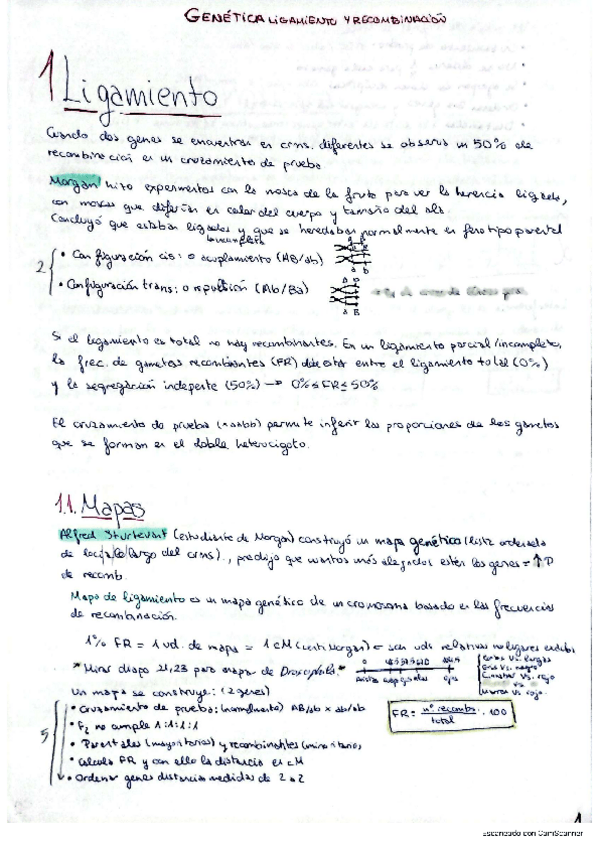 GENÉTICA LIGAMIENTO Y RECOMBINACIÓN
1 Ligamiento
Cuando dos genes se encuentran en crms. diferentes se observa un 50% de
recombinación en un cruzamiento de prueba.
Morgan hizo experimentos con la mosca de la fruta para ver la herencia ligada,
con moscas que diferían en color del cuerpo y tamaño del ala.
Concluyó que estaban ligados y que se heredaban normalmente en fenotipo parental
incompleto
• Configuración cis: o acoplamiento (AB/ab)
2
• Configuración trans: o repulsión (Ab/Ba)
Si el ligamiento es total no hay recombinantes. En un ligamiento parcial/incompleto,
la frec. de gametos recombinantes (FR) debe estar entre el ligamiento total (0%)
y la segregación indepente (50%) → 0% ≤ FR ≤ 50%
El cruzamiento de prueba (aabb) permite inferir las proporciones de los gametos
que se forman en el doble heterocigoto.
1.1. Mapas
Alfred Sturtevant (estudiante de Morgan) construyó un mapa genético (lista ordenada
de loci a lo largo del crms)., predijo que cuantos más alejados estén los genes = ↑ P
de recomb.
Mapa de ligamiento es un mapa genético de un cromosoma basado en las frecuencias
de recombinación.
1% FR = 1 ud. de mapa = 1 cM (centiMorgan) = son uds relativas no lugares exactos
*Mirar diapo 21,23 para mapa de Drosophila.*
0
Un mapa se construye: (2 genes)
• Cruzamiento de prueba: (normalmente) AB/ab x ab/ab
FR = nº recombs. / total · 100
• F2 no cumple 1:1:1:1
5
• Parentales (mayoritarios) y recombinantes (minoritarios)
• Calculo FR y con ello la distancia en cM
• Ordenar genes distancias medidas de 2 a 2
1
Escaneado con CamScanner